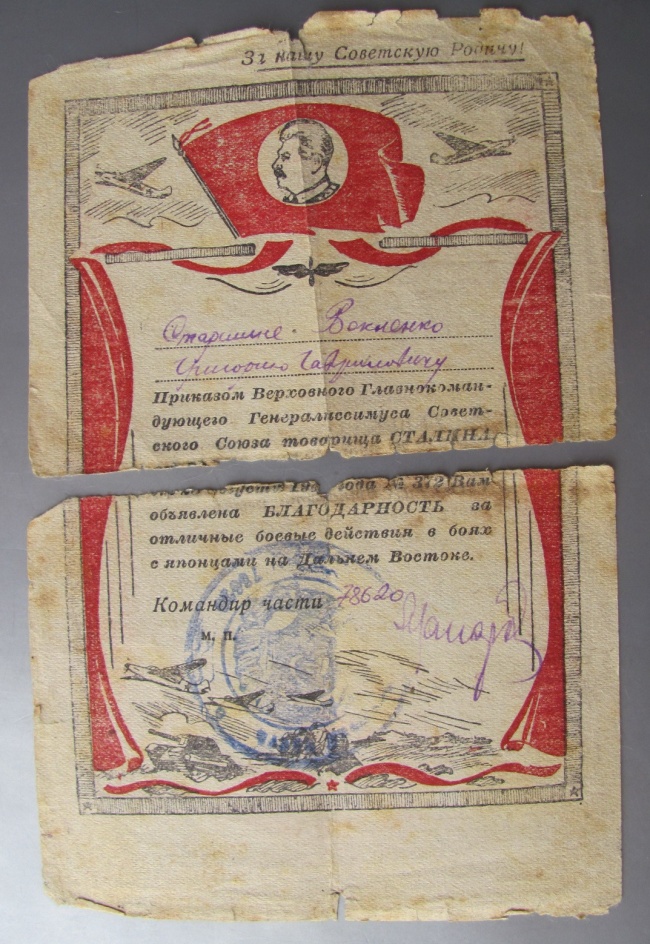 За нашу Советскую Родину!
Старшине Вакленко
Григорию Гавриловичу
Приказом Верховного Главнокоман-
дующего Генералиссимуса Совет-
ского Союза товарища СТАЛИНА
августа № 372 Вам
объявлена БЛАГОДАРНОСТЬ за
отличные боевые действия в боях
с японцами на Дальнем Востоке.
Командир части 78620
м. п.